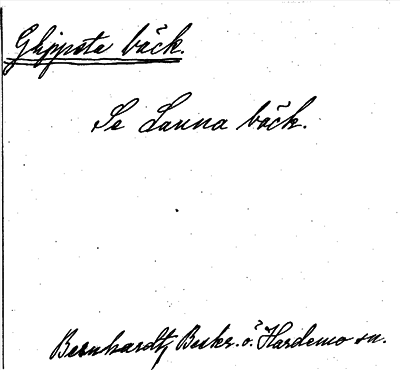 Glippsta bäck.
Se Launa bäck.
Bernhardtz Beskr. ö. Hardemo sn.